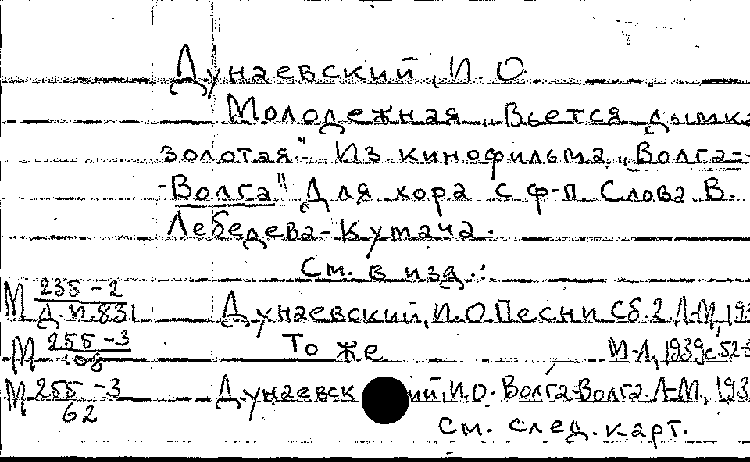 Дунаевский, И. О.
Молодежная „Вьется дымка
золотая". Из кинофильма „Волга-
-Волга" Для хора с ф-п. Слова В.
Лебедева-Кумача.
См. в изд.:
М 235-2 Дунаевский, И.О. Песни Сб. 2 Л-М, 193
Д.И.831
М 255-3 То же М-Л, 1939, с. 52-5
М 255-3 Дунаевский, И.О. Волга-Волга Л-М, 193
62
См. след. карт.